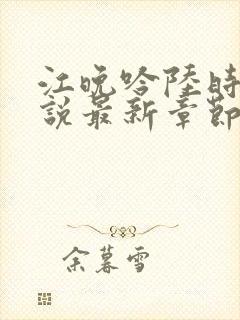 江晚吟陸時
說最新章節
余暮雪